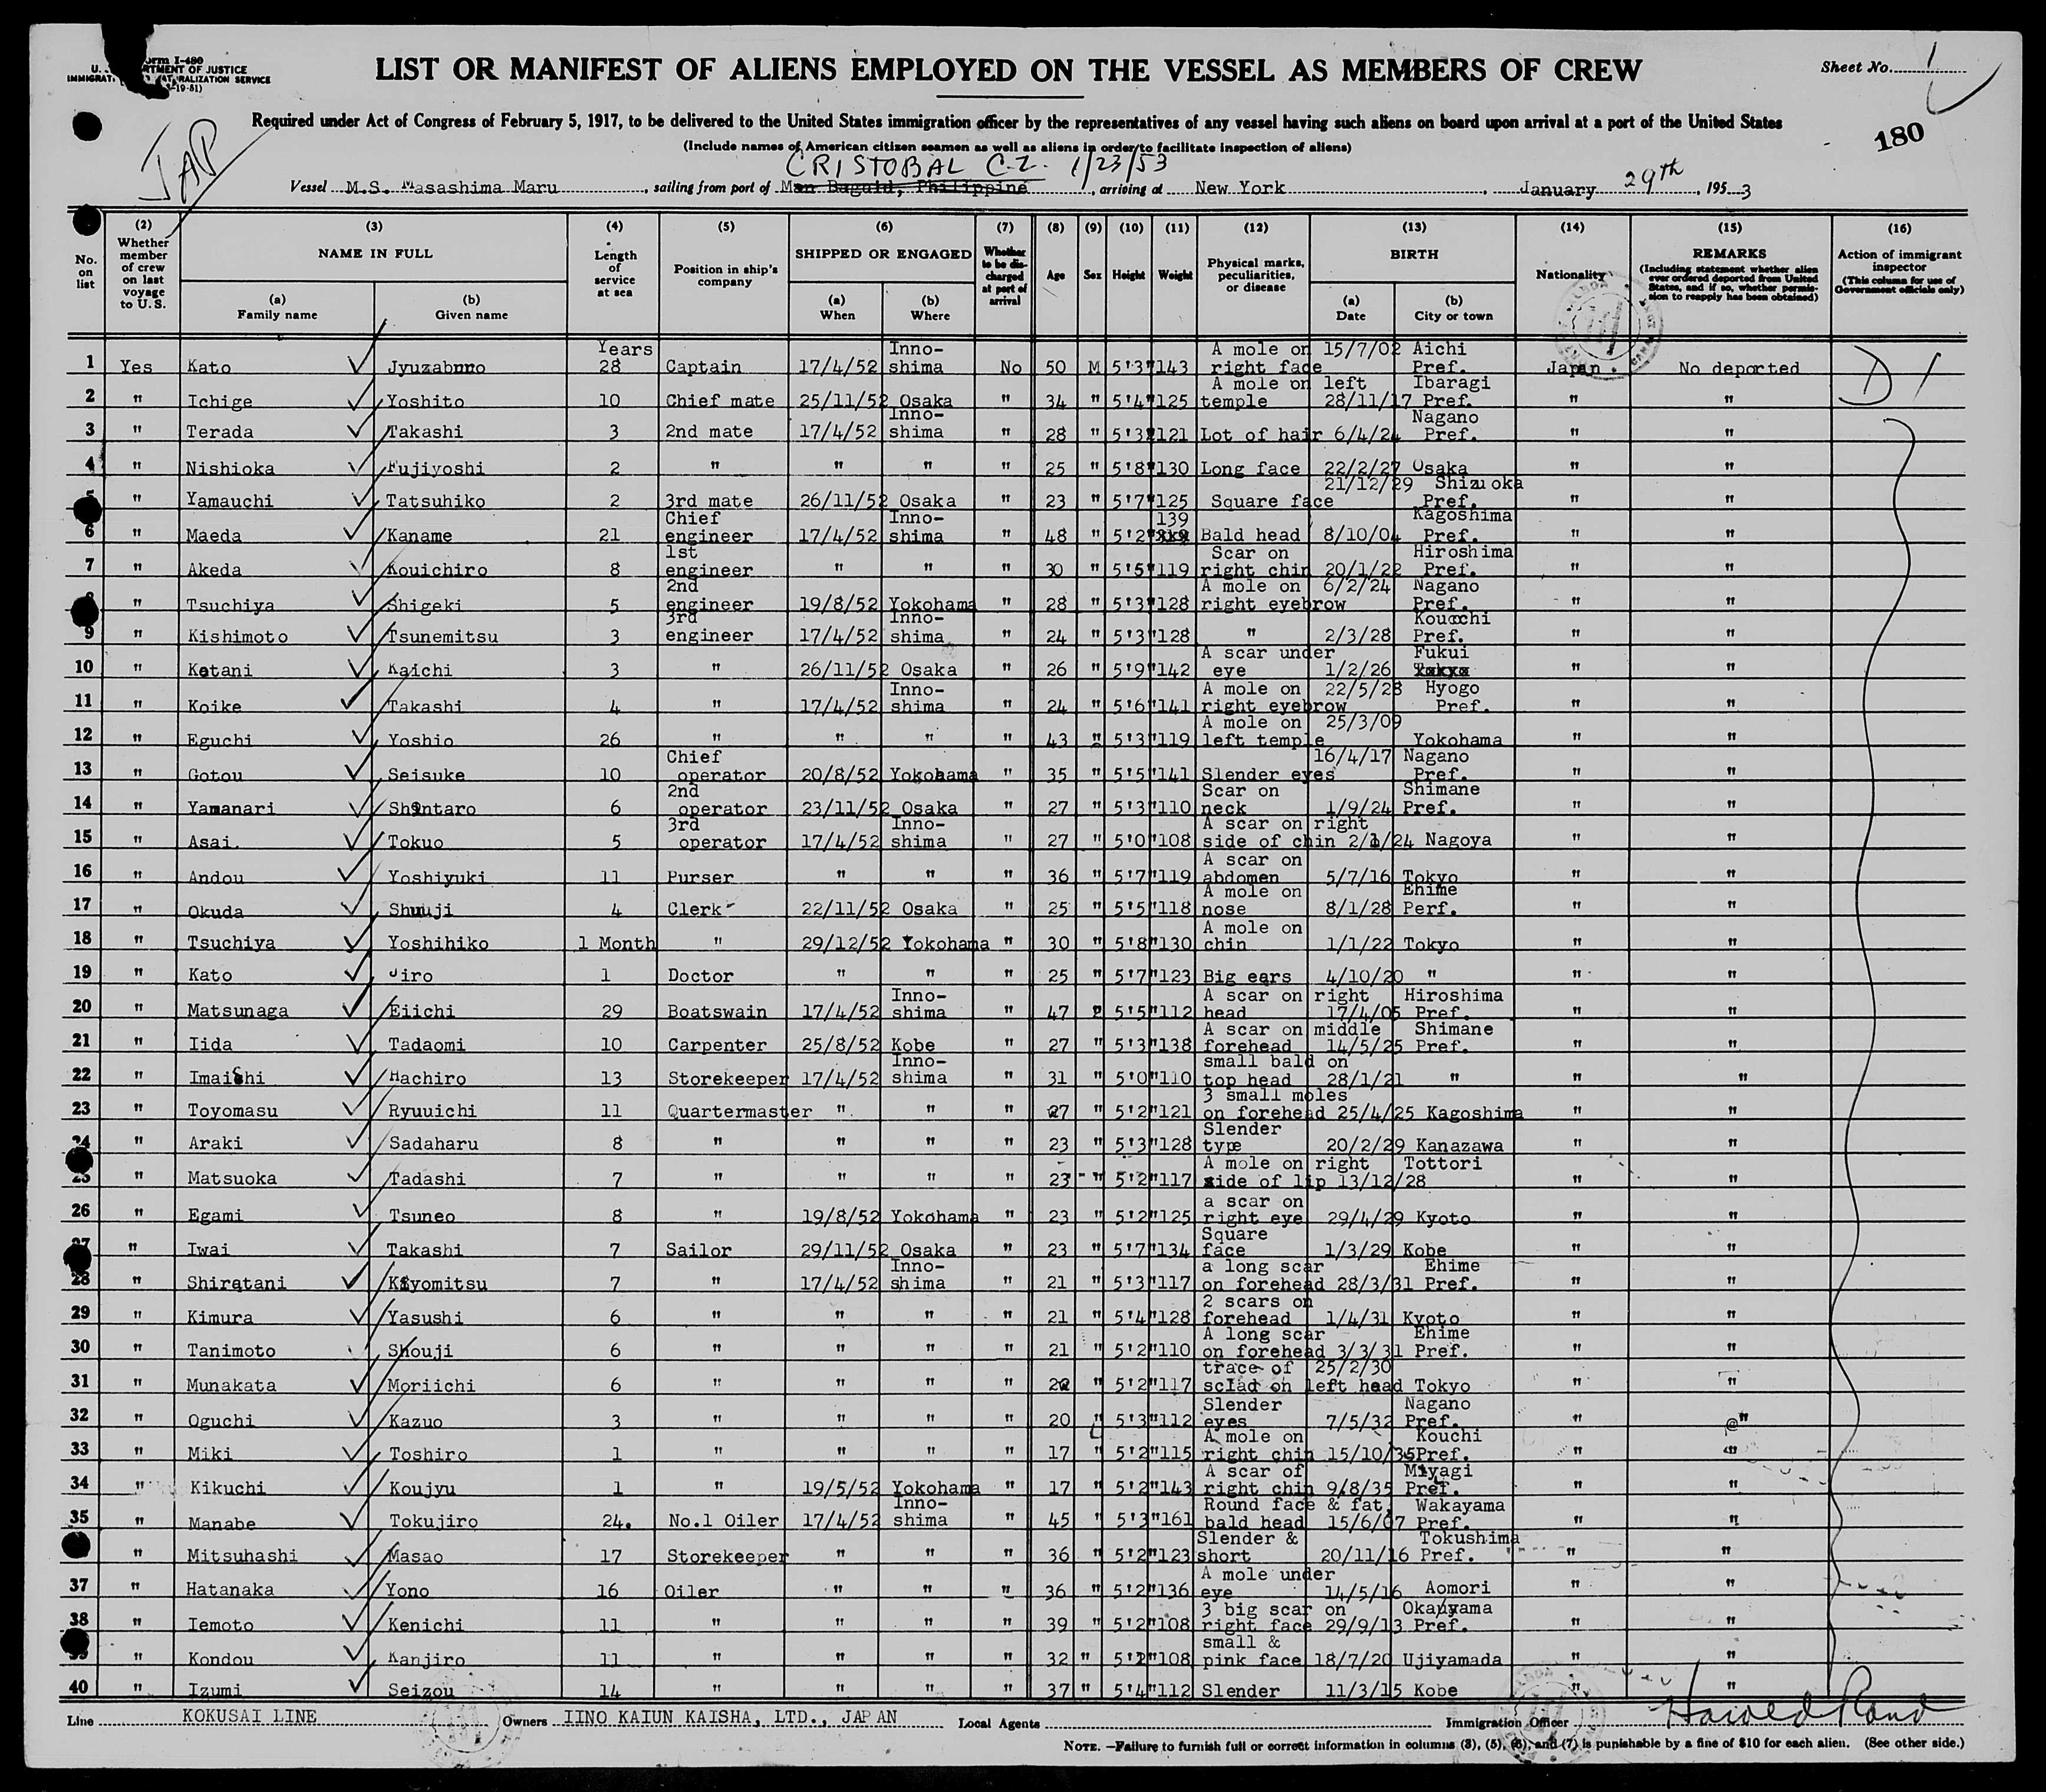 Form I-480
U. S. DEPARTMENT OF JUSTICE
IMMIGRATION AND NATURALIZATION SERVICE
LIST OR MANIFEST OF ALIENS EMPLOYED ON THE VESSEL AS MEMBERS OF CREW
Sheet No. 1
Required under Act of Congress of February 5, 1917, to be delivered to the United States immigration officer by the representatives of any vessel having such aliens on board upon arrival at a port of the United States
(Include names of American citizen seamen as well as aliens in order to facilitate inspection of aliens)
180
JAP
CRISTOBAL C.Z. 1/23/53
Vessel M.S. Masashima Maru, sailing from port of Man Baguid, Philippine, arriving at New York, January 29th, 1953
No. on list
(2) Whether member of crew on last voyage to U.S.
(3) NAME IN FULL (a) Family name (b) Given name
(4) Length of service at sea
(5) Position in ship's company
(6) SHIPPED OR ENGAGED (a) When (b) Where
(7) Whether to be discharged at port of arrival
(8) Age
(9) Sex
(10) Height
(11) Weight
(12) Physical marks, peculiarities, or disease
(13) BIRTH (a) Date (b) City or town
(14) Nationality
(15) REMARKS (Including statement whether alien ever ordered deported from United States, and if so, whether permission to reapply has been obtained)
(16) Action of immigrant inspector (This column for use of Government officials only)
1 Yes Kato Jyuzaburo Years 28 Captain 17/4/52 Inno-shima No 50 M 5'3" 143 A mole on right face 15/7/02 Aichi Pref. Japan. No deported D 1
2 " Ichige Yoshito 10 Chief mate 25/11/52 Osaka " 34 " 5'4" 125 A mole on left temple 28/11/17 Ibaragi Pref. " "
3 " Terada Takashi 3 2nd mate 17/4/52 Inno-shima " 28 " 5'3" 121 Lot of hair 6/4/24 Nagano Pref. " "
4 " Nishioka Fujiyoshi 2 " " " " 25 " 5'8" 130 Long face 22/2/27 Osaka " "
5 " Yamauchi Tatsuhiko 2 3rd mate 26/11/52 Osaka " 23 " 5'7" 125 Square face 21/12/29 Shizuoka Pref. " "
6 " Maeda Kaname 21 Chief engineer 17/4/52 Inno-shima " 48 " 5'2" 139 Bald head 8/10/04 Kagoshima Pref. " "
7 " Akeda Kouichiro 8 1st engineer " " " 30 " 5'5" 119 Scar on right chin 20/1/22 Hiroshima Pref. " "
8 " Tsuchiya Shigeki 5 2nd engineer 19/8/52 Yokohama " 28 " 5'3" 128 A mole on right eyebrow 6/2/24 Nagano Pref. " "
9 " Kishimoto Tsunemitsu 3 3rd engineer 17/4/52 Inno-shima " 24 " 5'3" 128 " 2/3/28 Kouchi Pref. " "
10 " Kotani Kaichi 3 " 26/11/52 Osaka " 26 " 5'9" 142 A scar under eye 1/2/26 Fukui Tokyo " "
11 " Koike Takashi 4 " 17/4/52 Inno-shima " 24 " 5'6" 141 A mole on right eyebrow 22/5/28 Hyogo Pref. " "
12 " Eguchi Yoshio 26 " " " " 43 " 5'3" 119 A mole on left temple 25/3/09 Yokohama " "
13 " Gotou Seisuke 10 Chief operator 20/8/52 Yokohama " 35 " 5'5" 141 Slender eyes 16/4/17 Nagano Pref. " "
14 " Yamanari Shintaro 6 2nd operator 23/11/52 Osaka " 27 " 5'3" 110 Scar on neck 1/9/24 Shimane Pref. " "
15 " Asai. Tokuo 5 3rd operator 17/4/52 Inno-shima " 27 " 5'0" 108 A scar on right side of chin 2/1/24 Nagoya " "
16 " Andou Yoshiyuki 11 Purser " " " 36 " 5'7" 119 A scar on abdomen 5/7/16 Tokyo " "
17 " Okuda Shuuji 4 Clerk 22/11/52 Osaka " 25 " 5'5" 118 A mole on nose 8/1/28 Ehime Perf. " "
18 " Tsuchiya Yoshihiko 1 Month " 29/12/52 Yokohama " 30 " 5'8" 130 A mole on chin 1/1/22 Tokyo " "
19 " Kato Jiro 1 Doctor " " " 25 " 5'7" 123 Big ears 4/10/20 " " "
20 " Matsunaga Eiichi 29 Boatswain 17/4/52 Inno-shima " 47 " 5'5" 112 A scar on right head 17/4/05 Hiroshima Pref. " "
21 " Iida Tadaomi 10 Carpenter 25/8/52 Kobe " 27 " 5'3" 138 A scar on middle forehead 14/5/25 Shimane Pref. " "
22 " Imaishi Hachiro 13 Storekeeper 17/4/52 Inno-shima " 31 " 5'0" 110 small bald on top head 28/1/21 " " "
23 " Toyomasu Ryuuichi 11 Quartermaster " " " 27 " 5'2" 121 3 small moles on forehead 25/4/25 Kagoshima " "
24 " Araki Sadaharu 8 " " " " 23 " 5'3" 128 Slender type 20/2/29 Kanazawa " "
25 " Matsuoka Tadashi 7 " " " " 23 " 5'2" 117 A mole on right side of lip 13/12/28 Tottori " "
26 " Egami Tsuneo 8 " 19/8/52 Yokohama " 23 " 5'2" 125 a scar on right eye 29/4/29 Kyoto " "
27 " Iwai Takashi 7 Sailor 29/11/52 Osaka " 23 " 5'7" 134 Square face 1/3/29 Kobe " "
28 " Shiratani Kiyomitsu 7 " 17/4/52 Inno-shima " 21 " 5'3" 117 a long scar on forehead 28/3/31 Ehime Pref. " "
29 " Kimura Yasushi 6 " " " " 21 " 5'4" 128 2 scars on forehead 1/4/31 Kyoto " "
30 " Tanimoto Shouji 6 " " " " 21 " 5'2" 110 A long scar on forehead 3/3/31 Ehime Pref. " "
31 " Munakata Moriichi 6 " " " " 22 " 5'2" 117 trace of sclad on left head 25/2/30 Tokyo " "
32 " Oguchi Kazuo 3 " " " " 20 " 5'3" 112 Slender eyes 7/5/32 Nagano Pref. " @"
33 " Miki Toshiro 1 " " " " 17 " 5'2" 115 A mole on right chin 15/10/35 Kouchi Pref. " "
34 " Kikuchi Koujyu 1 " 19/5/52 Yokohama " 17 " 5'2" 143 A scar of right chin 9/8/35 Miyagi Pref. " "
35 " Manabe Tokujiro 24. No.1 Oiler 17/4/52 Inno-shima " 45 " 5'3" 161 Round face & fat, bald head 15/6/07 Wakayama Pref. " "
" Mitsuhashi Masao 17 Storekeeper " " " 36 " 5'2" 123 Slender & short 20/11/16 Tokushima Pref. " "
37 " Hatanaka Yono 16 Oiler " " " 36 " 5'2" 136 A mole under eye 14/5/16 Aomori " "
38 " Iemoto Kenichi 11 " " " " 39 " 5'2" 108 3 big scar on right face 29/9/13 Okayama Pref. " "
39 " Kondou Kanjiro 11 " " " " 32 " 5'2" 108 small & pink face 18/7/20 Ujiyamada " "
40 " Izumi Seizou 14 " " " " 37 " 5'4" 112 Slender 11/3/15 Kobe " "
Line KOKUSAI LINE Owners IINO KAIUN KAISHA, LTD., JAPAN Local Agents Immigration Officer Harold Rand
NOTE.—Failure to furnish full or correct information in columns (3), (5), (6), and (7) is punishable by a fine of $10 for each alien. (See other side.)